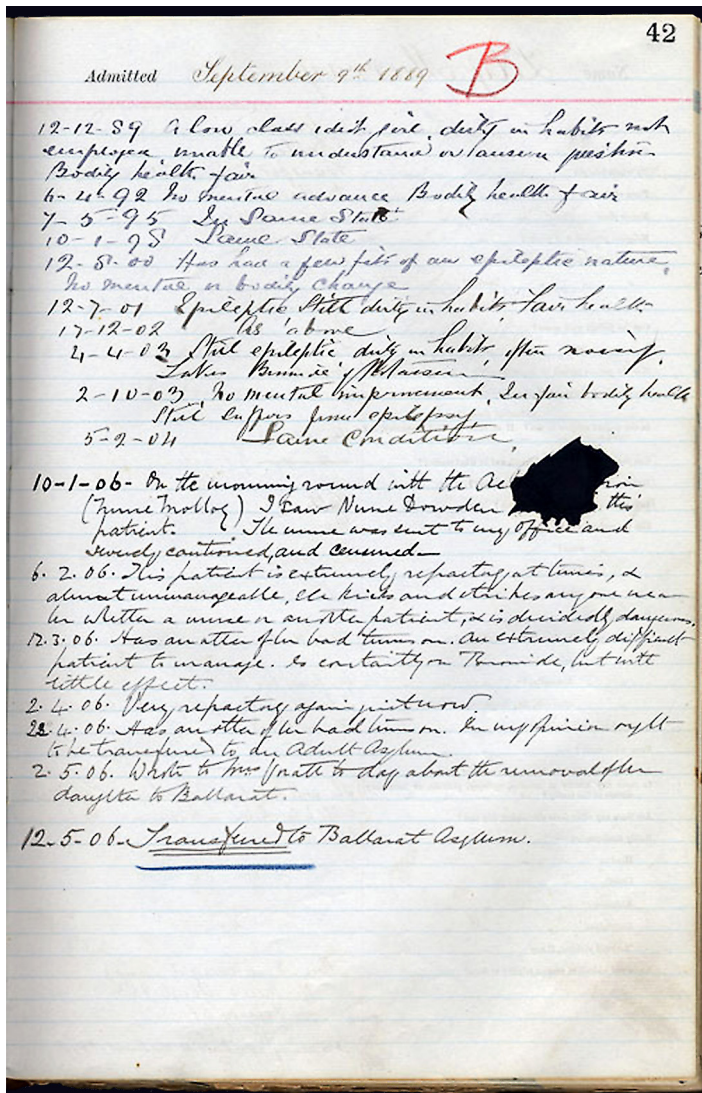 42
Admitted September 9th 1889 B
12-12-89 A low class idiot girl, dirty in habits not
employed unable to understand or answer question
Bodily health fair
6-4-92 No mental advance Bodily health fair
7-5-95 In Same State
10-1-98 Same State
12-5-00 Has had a few fits of an epileptic nature,
No mental or bodily change
12-7-01 Epileptic Still dirty in habits Fair health
17-12-02 As above
4-4-03 Still epileptic dirty in habits, often noisy,
Takes Bromide
2-10-03 No mental improvement. In fair bodily health
Still suffers from epilepsy
5-2-04 Same condition
10-1-06- On the morning round with the
(Nurse Molloy) I saw Nurse Dowden this
patient. The nurse was sent to my office and
severely cautioned, and censured—
6.2.06. This patient is extremely refractory at times, &
almost unmanageable, she kicks and strikes anyone near
her whether a nurse or another patient, & is decidedly dangerous.
12.3.06. Has another of her bad turns on. An extremely difficult
patient to manage. Is constantly on Bromide, but with
little effect.
2.4.06. Very refractory again just now
22.4.06. Has another of her bad turns on. In my opinion ought
to be transferred to an Adult Asylum.
2.5.06. Wrote to Mrs to day about the removal of her
daughter to Ballarat.
12-5-06- Transferred to Ballarat Asylum.